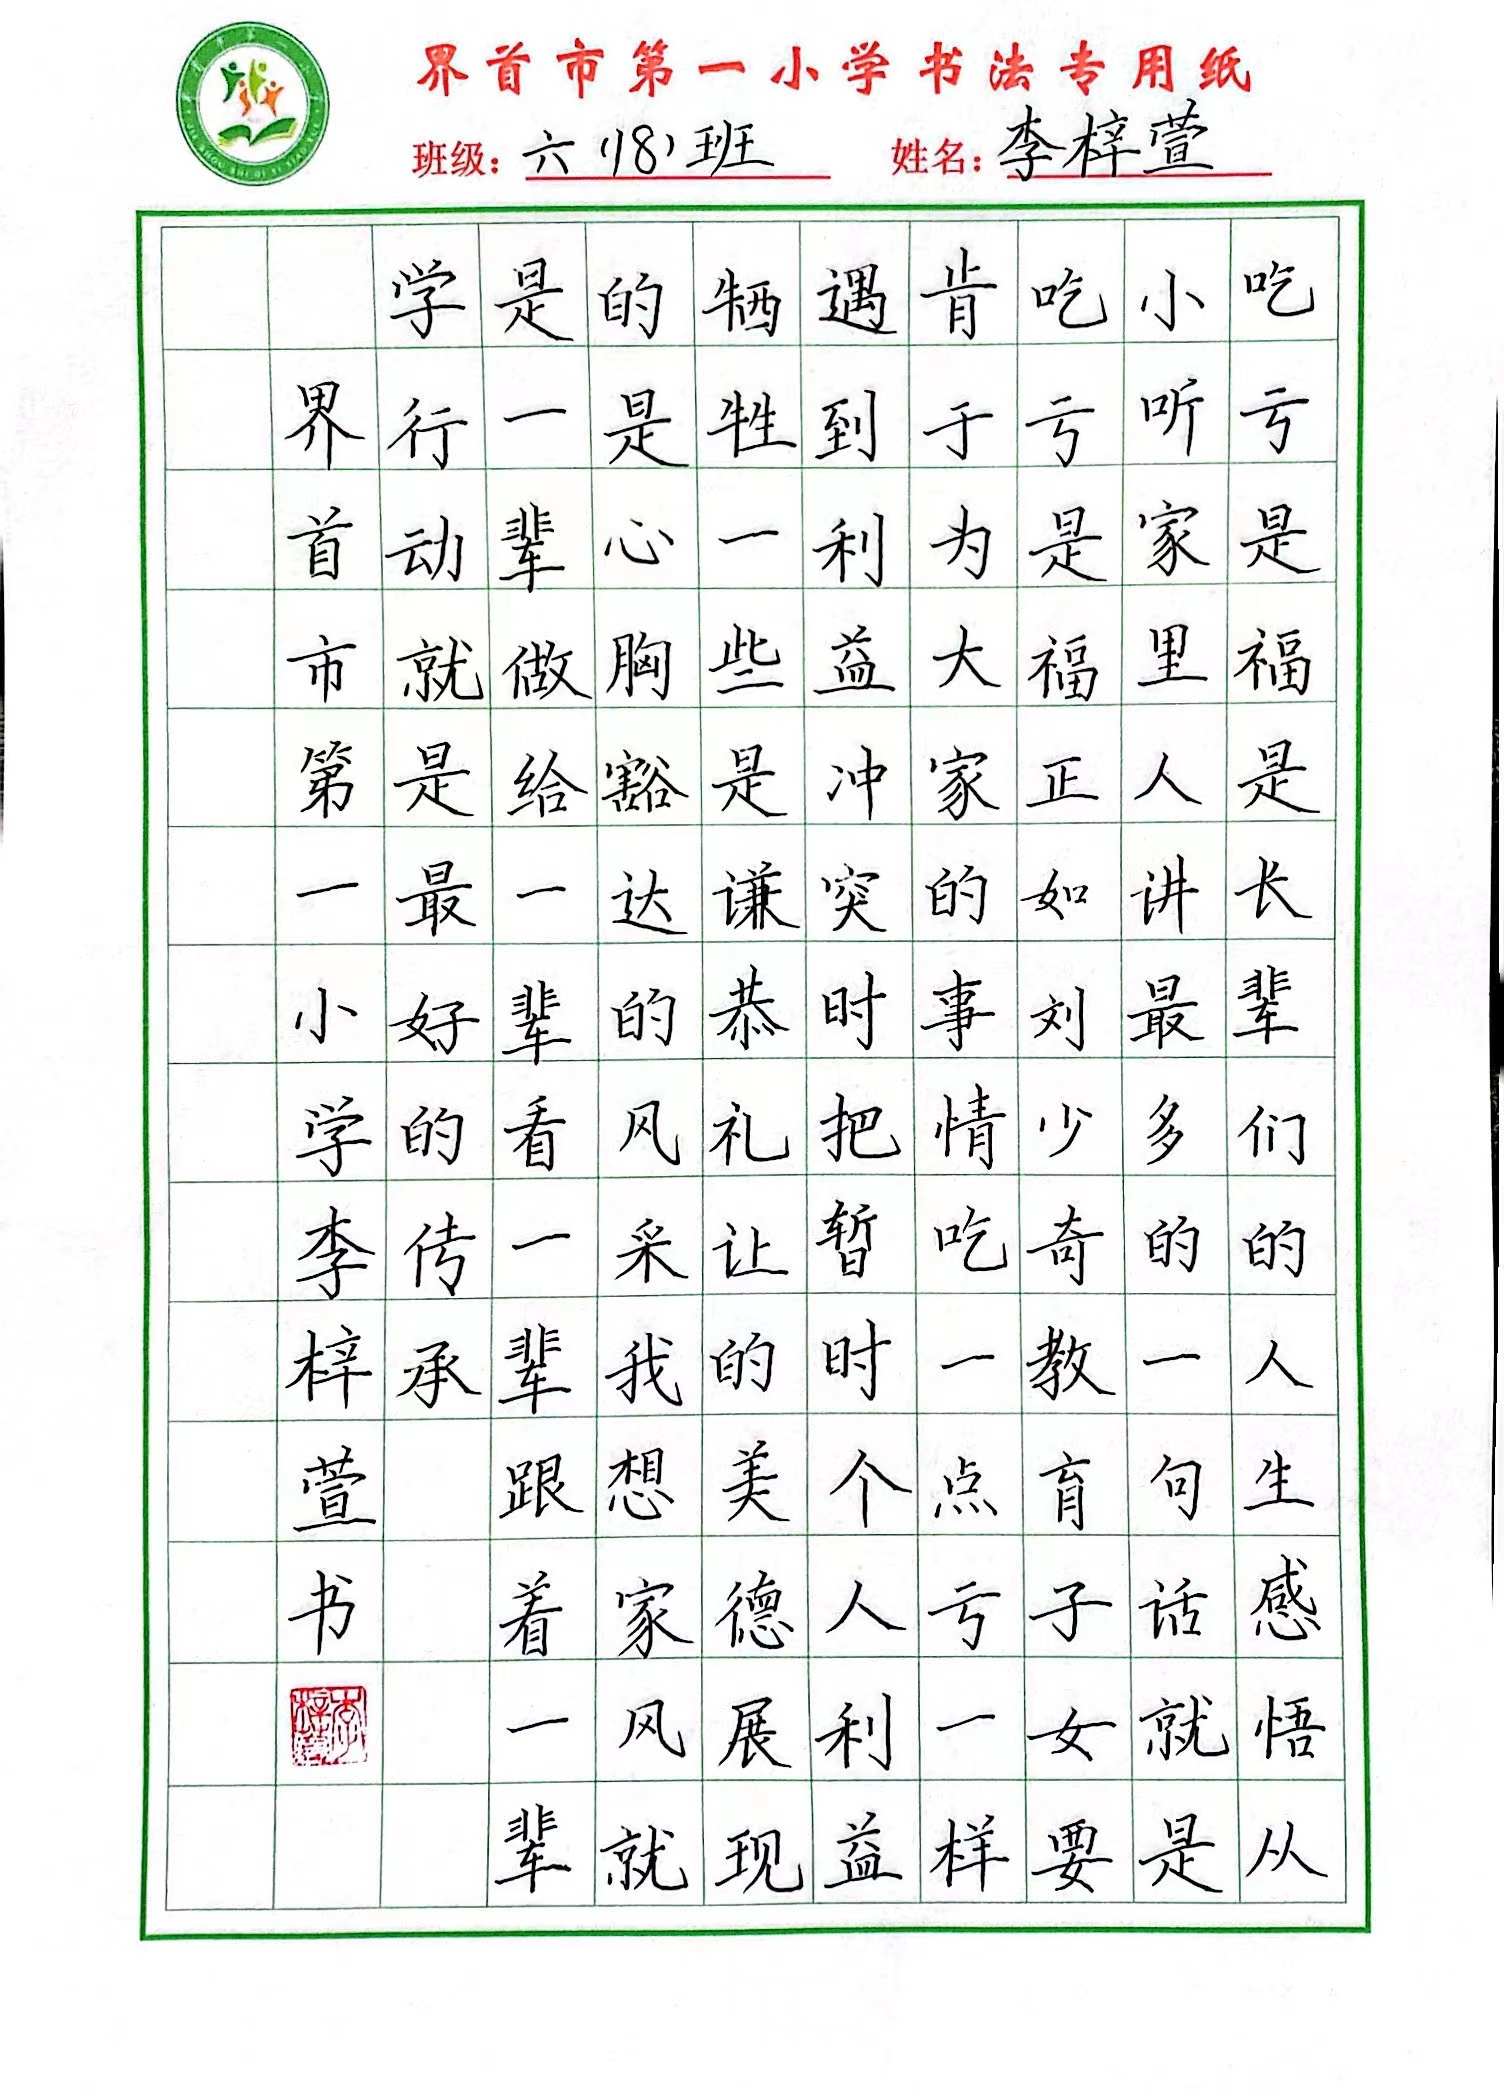 界首市第一小学书法专用纸
班级：六（18）班 姓名：李梓萱
吃亏是福是长辈们的人生感悟从
小听家里人讲最多的一句话就是
吃亏是福正如刘少奇教育子女要
肯于为大家的事情吃一点亏一样
遇到利益冲突时把暂时个人利益
牺牲一些是谦恭礼让的美德展现
的是心胸豁达的风采我想家风就
是一辈做给一辈看一辈跟着一辈
学行动就是最好的传承
界首市第一小学李梓萱书